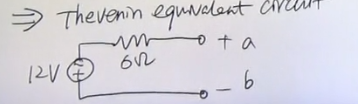 ⇒ Thevenin equivalent circuit
+ a
6Ω
12V
- b